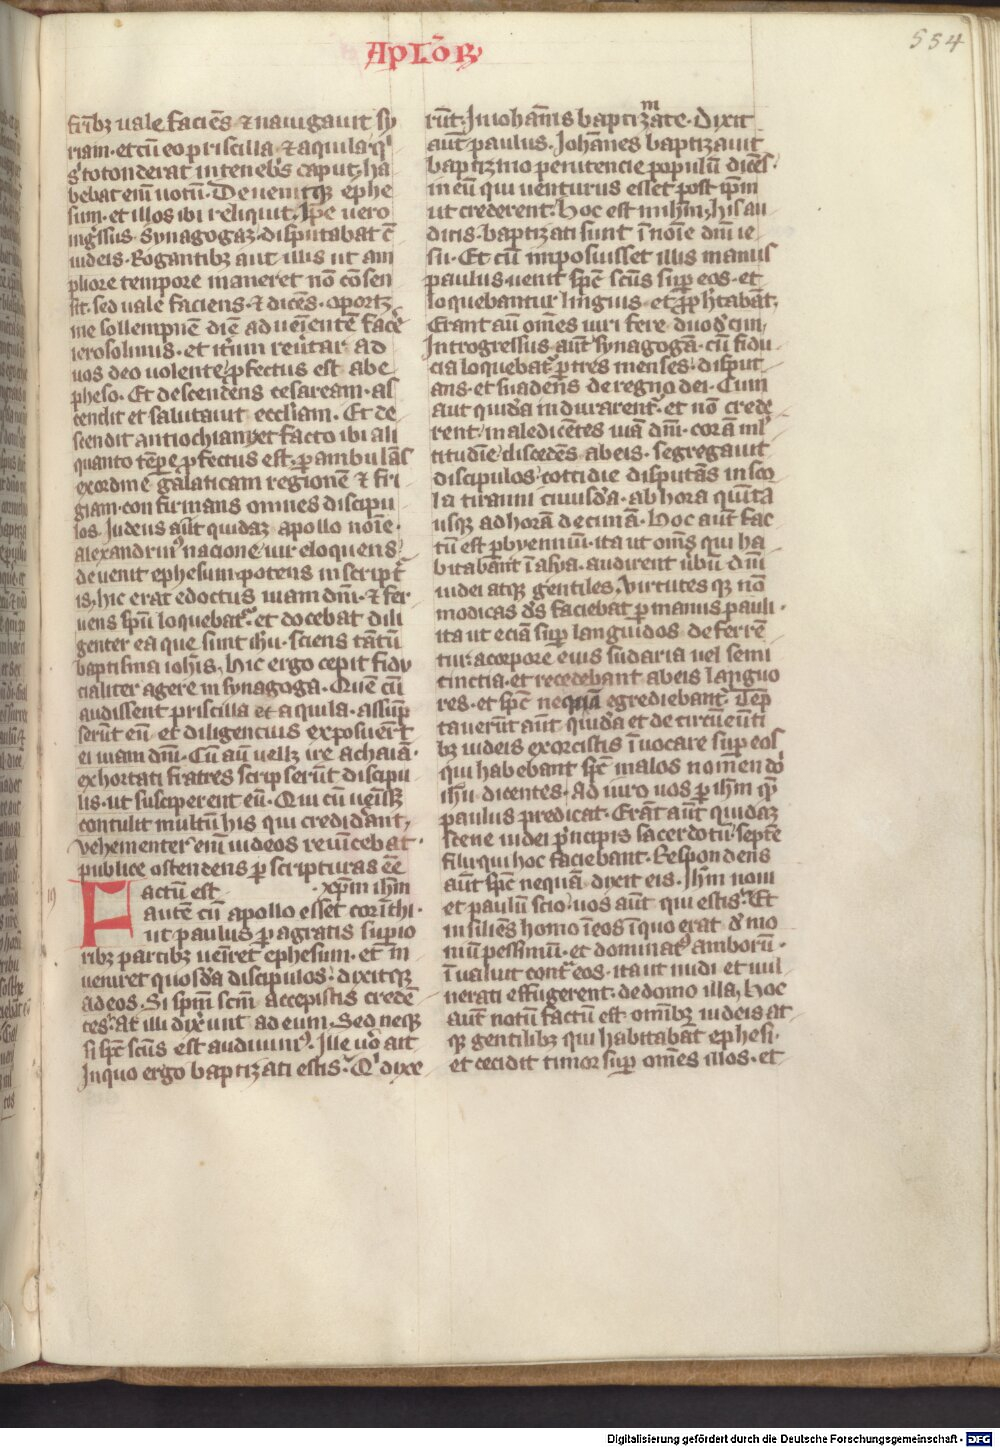 Aploꝝ
554
fribꝫ vale faciēs ⁊ nauigauit sy
riam · et cū eo priscilla ⁊ aquila q
s totonderat in tenebs caput · ha
bebat eim votū · Deuenitqꝫ ephe
sum · et illos ibi reliquit · Ipe uero
ingssus synagogaꝫ disputabat cū
iudeis · Rogantibꝫ aut illis ut am
pliore tempore maneret nō cōsen
sit · sed vale faciens · ⁊ dicēs · oportꝫ
me sollempnē diē aduenientē facē
ierosolimis · et itum reutar ad
uos deo volente pfectus est abe
pheso · Et descendens cesaream · as
cendit et salutauit eccliam · Et de
scendit antiochiam et facto ibi ali
quanto tēpe pfectus est · pambulās
exordine galaticam regionē ⁊ fri
giam · confirmans omnes discipu
los · Iudeus aūt quidaꝫ apollo noīe ·
alexandrin nacione vir eloquens
deuenit ephesum potens in script
is · hic erat edoctus uiam dm̄ · ⁊ fer
uens spū loquebat · et docebat dili
genter ea que sunt ihu · sciens tātū
baptisma iohis · hic ergo cepit fidu
cialiter agere in synagoga · Quē cū
audissent priscilla et aquila · assūp
serūt eū et diligencius exposuert
ei uiam dm̄ · Cū aū vellꝫ ire achaiā ·
exhortati fratres scripserūt discipu
lis · ut susciperent eū · Qui cū ueīsꝫ
contulit multū his qui crediderant ·
vehementer eim iudeos reuīcebat ·
publice ostendens p scripturas eē
xpm ihm
19
Factū est
autē cū apollo esset corīthi ·
ut paulus pagratis supio
ribꝫ partibꝫ ueīret ephesum · et in
veniret quosda discipulos · dixitqꝫ
ad eos · Si spm̄ scm̄ accepistis credē
tes · At illi dixerunt ad eum · Sed neqꝫ
si spc scūs est audiuim · Ille uo ait
In quo ergo baptizati estis · Qi dixe
rūt · In iohānis baptizmate · Dixit
aūt paulus · Iohānes baptizauit
baptizmo penitencie populū dicēs ·
in eū qui uenturus esset post ipm
ut crederent · hoc est in ihm · his au
ditis · baptizati sunt ī noīe dm̄ ie
su · Et cū imposuisset illis manus
paulus · uenit spc scūs sup eos · et
loquebantur linguis · et pphtabāt ·
Erant aū omēs viri fere duodcim ·
Introgressus aūt synagogā · cū fidu
cia loquebat p tres menses · disput
ans · et suadens de regno dei · Cum
aut quida indurarent · et nō crede
rent · maledicētes uiā dm̄ · corā ml
titudīe discedēs ab eis · segregauit
discipulos cottidie disputās in sco
la tiranni cuiusda · ab hora quīta
usqꝫ ad horā decimā · hoc aūt fac
tū est p byenniū · ita ut omēs qui ha
bitabānt ī asya · audirent ubū dm̄
iudei atqꝫ gentiles · Virtutes qꝫ nō
modicas ds faciebat p manus pauli ·
ita ut eciā sup languidos deferrē
tur · a corpore eius sudaria uel semi
cinctia · et recedebant ab eis languo
res · et spc nequā egrediebant · Temp
tauerūt aūt quida et de circūeūti
bꝫ iudeis exorcistis īuocare sup eos
qui habebant spc malos nomen do
ihu · dicentes · Adiuro uos p ihm qm
paulus predicat · Erāt aūt quidaꝫ
sceue iudei pncipis sacerdotū septē
filii qui hoc faciebant · Respondens
aūt spc nequā dixit eis · Ihm noui
et paulū scio · uos aūt qui estis · Et
insiliēs homo ī eos ī quo erat de mo
niū pessimū · et dominat amborū ·
īualuit contra eos · ita ut nudi et uul
nerati effugerent · de domo illa · hoc
aūt notū factū est omībꝫ iudeis at
qꝫ gentilibꝫ qui habitabāt ephesi ·
et cecidit timor sup omēs illos · et
Digitalisierung gefördert durch die Deutsche Forschungsgemeinschaft - DFG